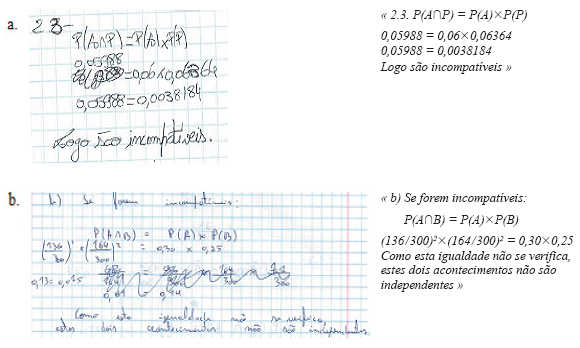 a.
2 3-
P(A∩P)=P(A)xP(P)
0,05988
=0,06x0,06364
0,05988=0,0038184
Logo são incompatíveis.
« 2.3. P(A∩P) = P(A)×P(P)
0,05988 = 0,06×0,06364
0,05988 = 0,0038184
Logo são incompatíveis »
b.
b) Se forem incompatíveis:
P(A∩B) = P(A) x P(B)
= 0,30 x 0,25
0,13=0,075
Como esta igualdade não se verifica,
estes dois acontecimentos não são independentes
« b) Se forem incompatíveis:
P(A∩B) = P(A)×P(B)
(136/300)²×(164/300)² = 0,30×0,25
Como esta igualdade não se verifica,
estes dois acontecimentos não são
independentes »